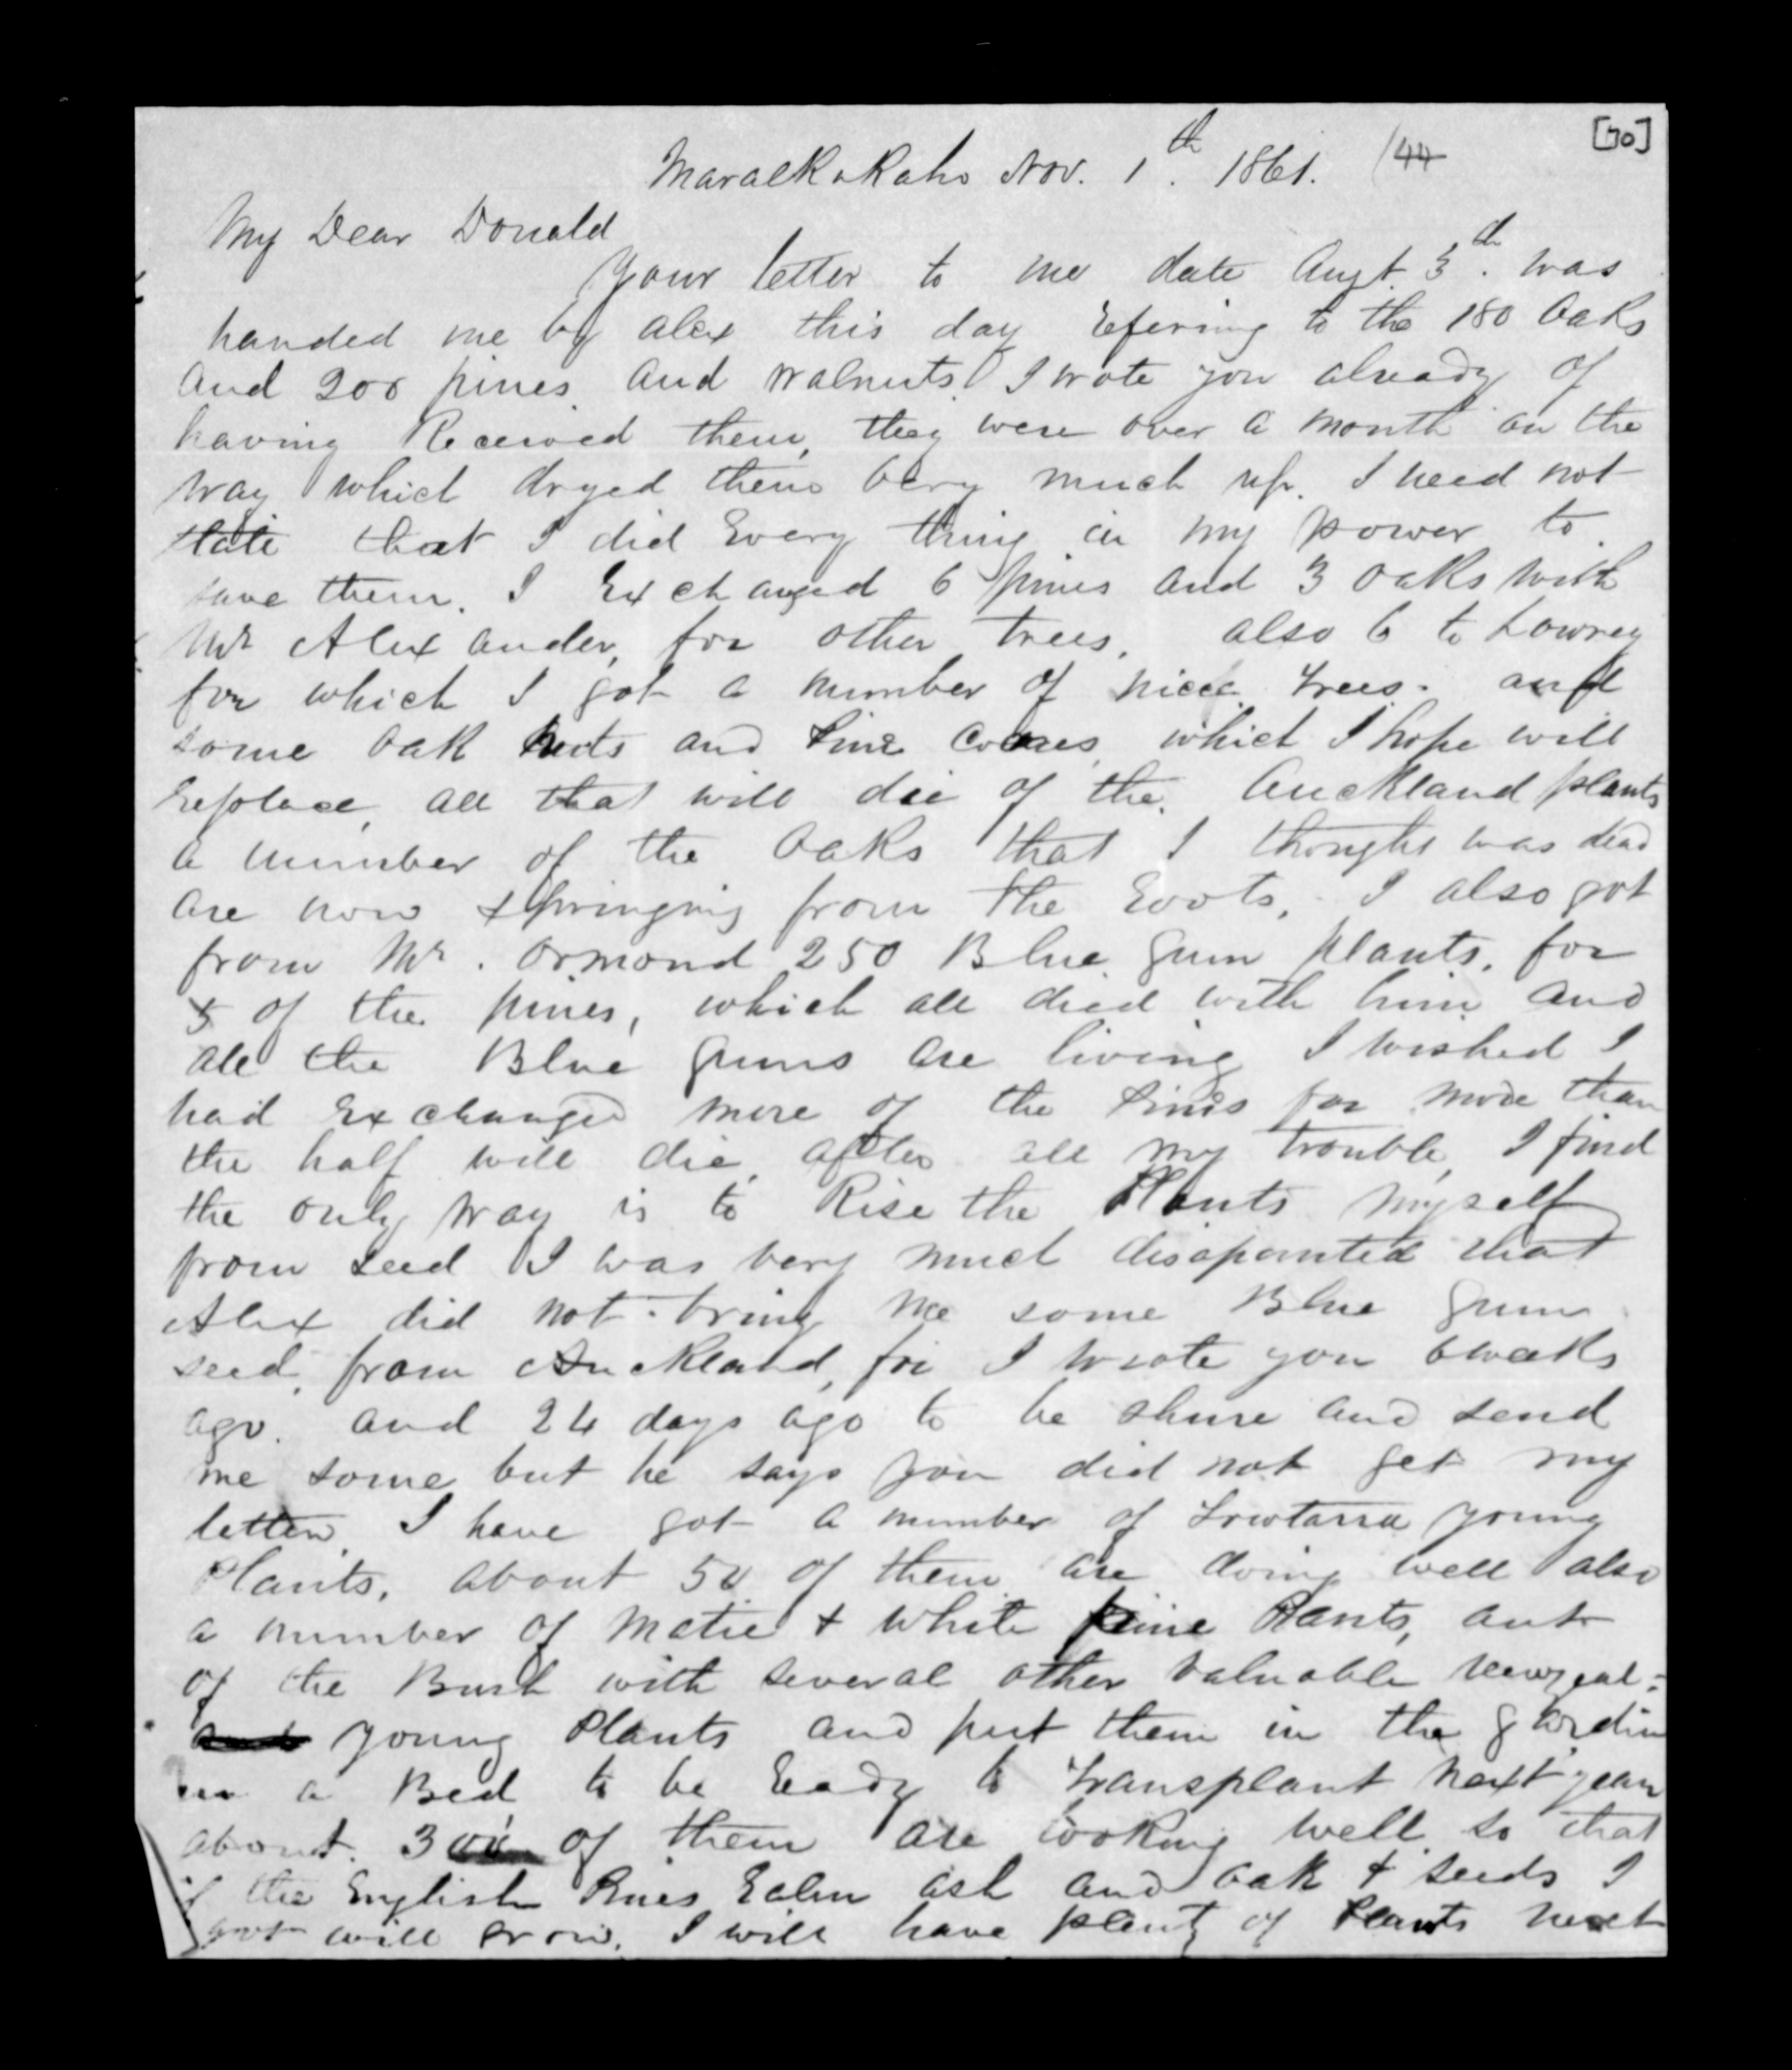 [70]
Maraekakaho Nov. 1th. 1861. /44
My Dear Donald
Your letter to me date Augt. 3d. was
handed me by Alex this day Refering to the 180 Oaks
and 200 pines and walnuts. I wrote you already of
having Received them, they were over a month on the
way which dryed them very much up. I need not
state that I did Every thing in my power to
save them. I Exchanged 6 pines and 3 oaks with
Mr Alexander, for other trees, also 6 to Lowrey
for which I got a number of nice trees. and
some Oak nuts and Pine Cones, which I hope will
Replace, all that will die of the Auckland plants
a number of the Oaks that I thought was dead
are now springing from the Roots, I also got
from Mr. Ormond 250 Blue gum plants, for
5 of the pines, which all died with him and
all the Blue gums are living I wished I
had Exchanged more of the Pines for more than
the half will die, after all my trouble, I find
the only way is to Rise the Plants myself
from seed I was very much disapointed that
Alex did not bring me some Blue gum
seed, from Auckland, for I wrote you 6 weeks
ago. and 24 days ago to be shure and send
me some but he says you did not get my
letter. I have got a number of young
Plants, about 50 of them are doing well also
a number of Matie & white pine Plants, out
of the Bush with several other valuable Newzeal=
and young Plants and put them in the gardin
in a Bed to be Ready to transplant next year
about 300 of them are looking well so that
if the English Pines Ealm ash and oak & seeds I
got will grow. I will have planty of Plants next